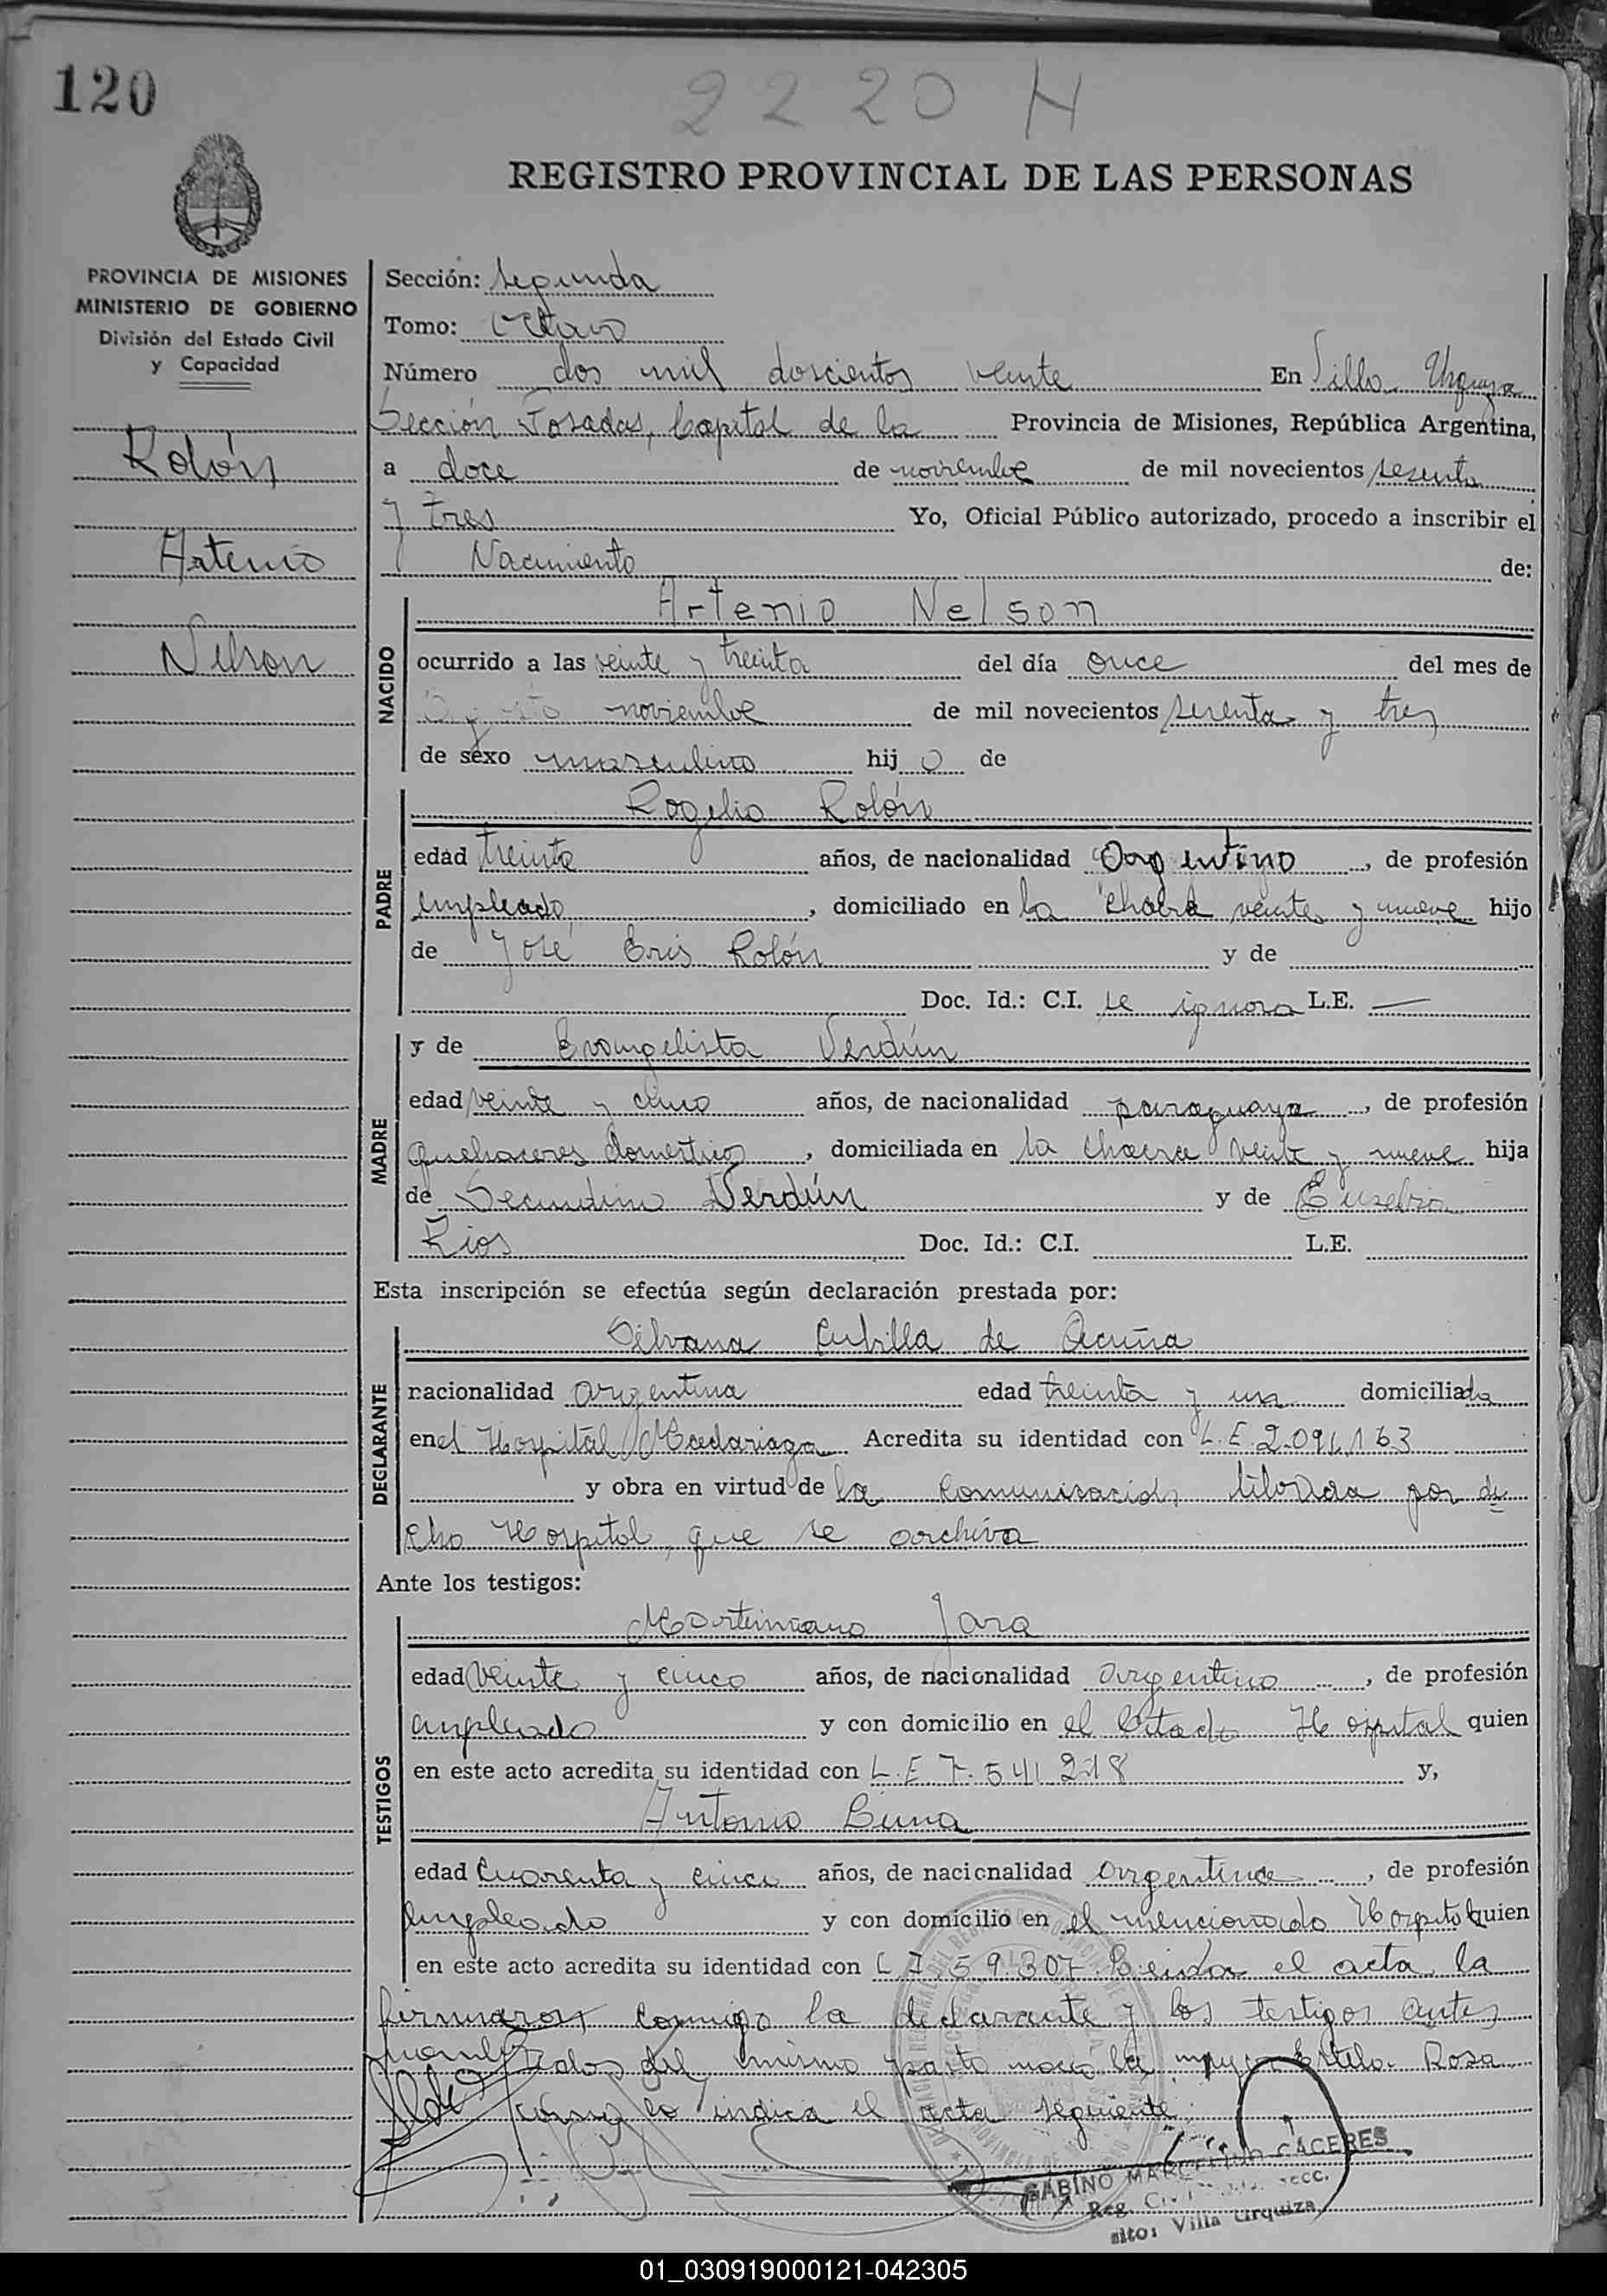 120
2220 H
REGISTRO PROVINCIAL DE LAS PERSONAS
PROVINCIA DE MISIONES
MINISTERIO DE GOBIERNO
División del Estado Civil
y Capacidad
Rolón
Artemio
Nelson
Sección: Segunda
Tomo: Octavo
Número dos mil doscientos veinte En Villa Urquiza
Sección Posadas, Capital de la Provincia de Misiones, República Argentina,
a doce de noviembre de mil novecientos sesenta
y tres Yo, Oficial Público autorizado, procedo a inscribir el
Nacimiento de:
NACIDO
Artenio Nelson
ocurrido a las veinte y treinta del día once del mes de
noviembre de mil novecientos sesenta y tres
de sexo masculino hijo de
PADRE
Rogelio Rolón
edad treinta años, de nacionalidad argentino, de profesión
empleado, domiciliado en la chacra veinte y nueve hijo
de José Rolón y de
Doc. Id.: C.I. se ignora L.E. —
MADRE
y de Evangelista Verdún
edad veinte y cinco años, de nacionalidad paraguaya, de profesión
quehaceres domésticos, domiciliada en la chacra veinte y nueve hija
de Secundino Verdún y de Eusebia
Rios Doc. Id.: C.I. L.E.
Esta inscripción se efectúa según declaración prestada por:
DECLARANTE
Silvana Cubilla de Acuña
nacionalidad argentina edad treinta y un domiciliada
en el Hospital Madariaga Acredita su identidad con L.E. 2.091.163
y obra en virtud de la comunicación librada por di
cho Hospital, que se archiva
Ante los testigos:
TESTIGOS
Marteniano Jara
edad veinte y cinco años, de nacionalidad argentino, de profesión
empleado y con domicilio en el citado Hospital quien
en este acto acredita su identidad con L.E 7.541.218 y,
Antonio
edad cuarenta y cinco años, de nacionalidad argentina, de profesión
empleado y con domicilio en el mencionado Hospital quien
en este acto acredita su identidad con L.7.59.307 Leida el acta, la
firmaron conmigo la declarante y los testigos antes
del mismo parto nació la Estela Rosa
como lo indica el acta siguiente.
GABINO MARCELINO CACERES
Reg. Secc.
sito: Villa Urquiza
01_030919000121-042305